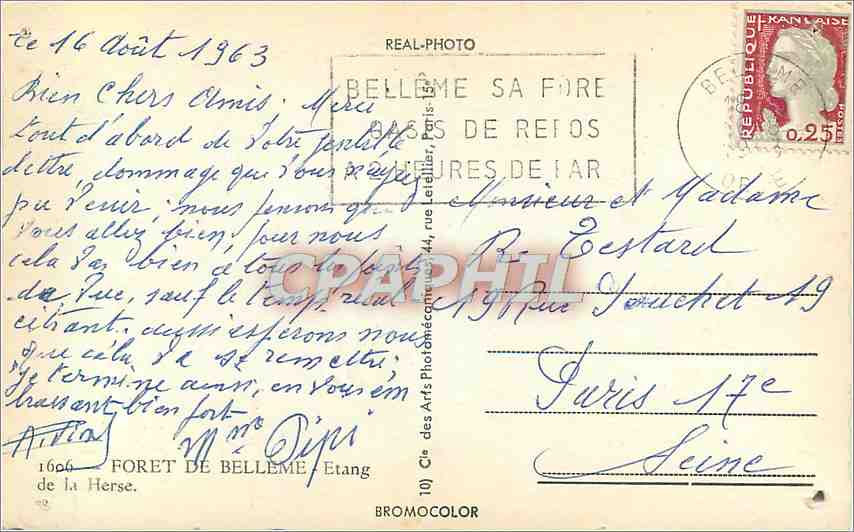 REAL-PHOTO
Le 16 Août 1963
Bien Chers Amis. Merci
tout d'abord de Votre gentille
lettre, dommage que Vous n'ayez
pu Venir; nous pensons que
Vous allez bien, pour nous
cela Va bien à tous les points
de Vue, sauf le temps
aussi espérons nous
que cela Va se remettre,
Je termine ainsi, en Vous em
brassant bien fort
Mme
1606 FORET DE BELLEME - Etang
de la Herse.
BELLÊME SA FORE
OASIS DE REPOS
A 2 HEURES DE PAR
REPUBLIQUE FRANÇAISE
0,25
Monsieur et Madame
R. Testard
19 Rue Pouchet 19
Paris 17e
Seine
10) Cie des Arts Photomécaniques, 44, rue Letellier, Paris-15e
BROMOCOLOR
CPAPHIL